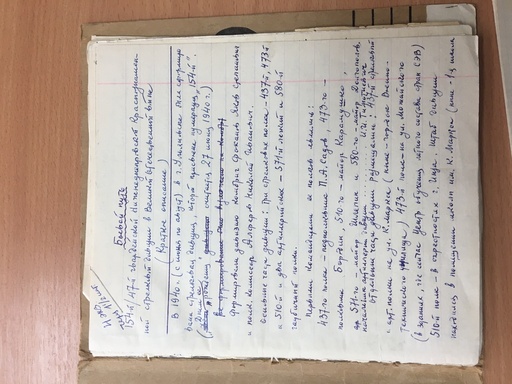 4 экз
Боевой путь
154-й/47-й гвардейской Нижнеднепровской Краснознамен-
ной стрелковой дивизии в Великой Отечественной войне
(Краткое описание)
В 1940 г. (с июня по август) в г. Ульяновске была сформиро
вана стрелковая дивизия, которой присвоена нумерация "154-й".
(Днем ее рождения считается 27 июня 1940 г.)
Формировали дивизию комбриг Фоканов Яков Степанович
и полк. комиссар Алферов Николай Иванович.
Основные части дивизии: три стрелковые полка - 437-й, 473-й
и 510-й и два артиллерийских - 571-й легкий и 580-й
гаубичный полки.
Первыми командирами полков являлись:
437-го полка - подполковник П.А. Садов, 473-го -
полковник Бордин, 510-го - майор Карапушко,
571-го - майор и 580-го - майор Долгополов.
начальник артиллерии дивизии
Отдельные части дивизии размещались: 437-й стрелковый
и арт. полки на ул. К. Маркса (ныне - городок Военно-
технического училища) 473-й полк на ул. Можайского
(в зданиях, где сейчас Центр обучения летного состава стран СЭВ)
510-й полк - в окрестностях г. Инза. Штаб дивизии
находился в помещении школы им. К. Маркса (ныне - 1-я школа